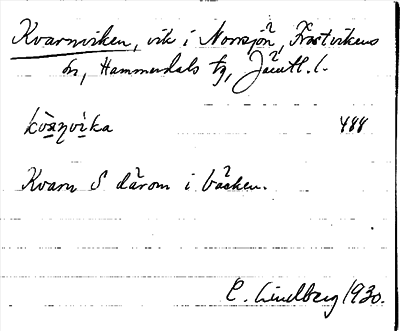 Kvarnviken, vik i Norrsjön, Frostvikens
sn, Hammerdals tg, Jämtl. l.
kvànvìka 488
Kvarn S därom i bäcken.
C. Lindberg 1930.